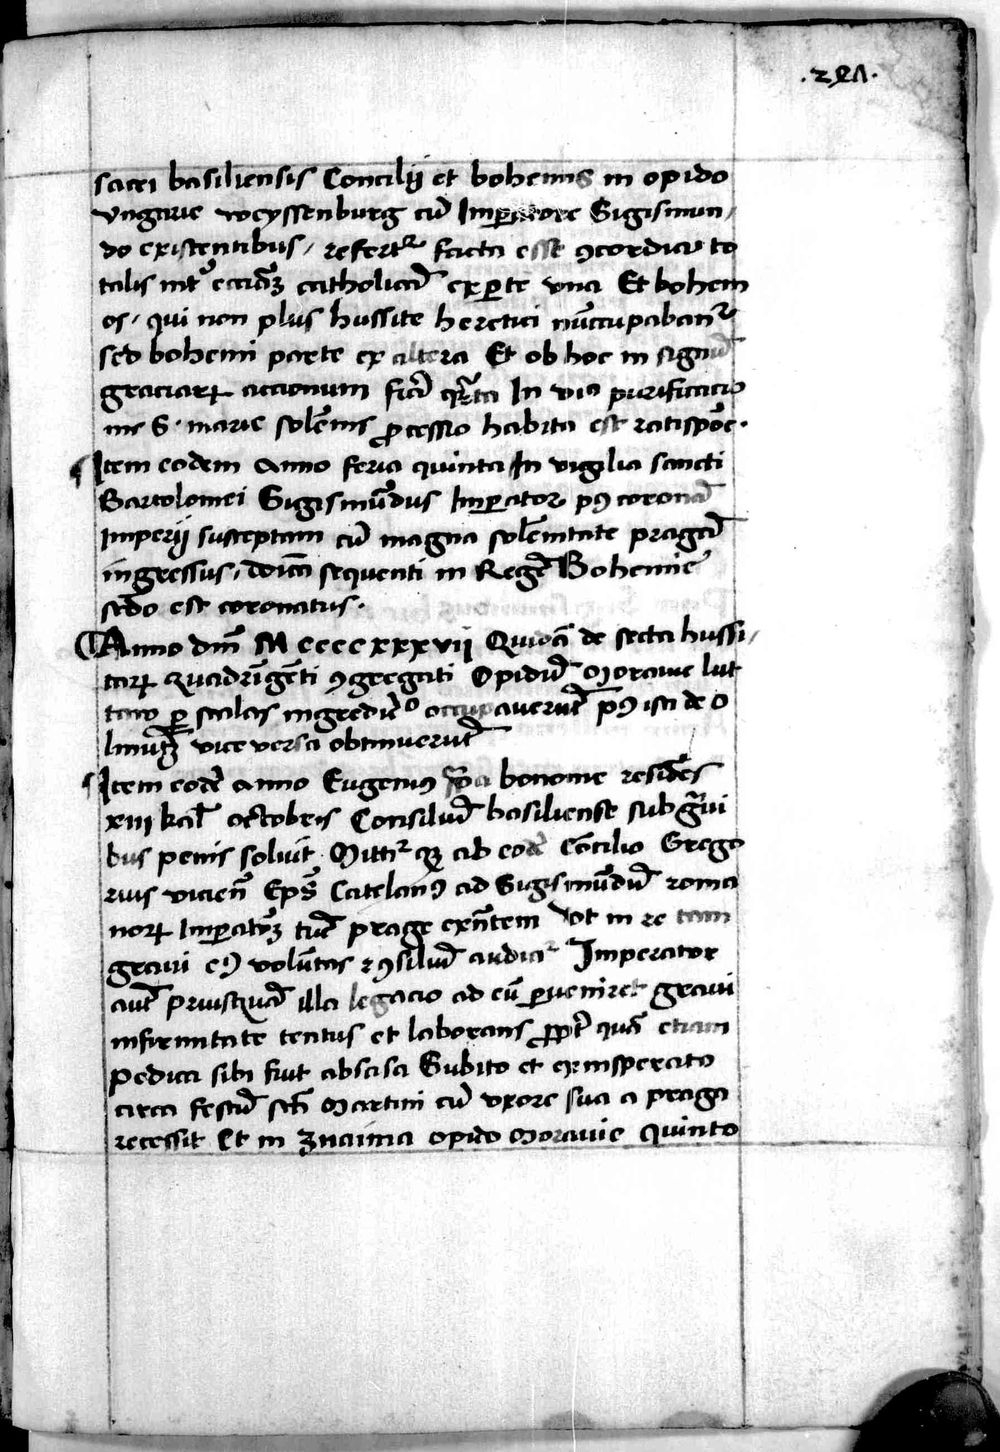 .291.
sacri basiliensis Concilij et bohemis in opido
vngarie weyssenburg cū Imperatore Sigismun,
do existentibus, refertr facta esse ꝯcordia to
talis int᷒ ecciāꝫ catholicā ex ꝑte vna Et bohem
os, qui non plus hussite heretici nūccupabanr
sed bohemi parte ex altera Et ob hoc in signū
graciaꝝ accionum f̄ia qrta In via purificacio
nis S. marie solēnis ꝓcessio habita est ratispōe.
Item eodem Anno feria quinta In vigilia sancti
Bartolomei Sigismūdus Imperator pꝰ coronā
imperij susceptam cū magna solēnitate pragā
ingressus, doīca sequenti in Regē Bohemie
scdo est coronatus.
Anno dm̄ M cccc xxxvii Quidā de secta hussi,
taꝝ Quadringēti ꝯgregati Opidū Moravie lut
taw ꝑ scalas ingrediēdo occupaverūt pꝰ isti de O
lmutꝫ vice versa obtinuerūt
Item eodē Anno Eugeniꝰ ppa bononie residēs
xiiii kal octobris Consiliū basiliense sub grāui
bus penis soluit Mittir qꝫ ab eodē Cōncilio Grego
rius vicieñ Ep̄s Catelanꝰ ad Sigismūdū roma
noꝝ Imperatoꝫ tūc prage exn̄tem Vt in re tam
graui eiꝰ volūtas ⁊ ꝯsiliū audiar Imperator
aut̄ priusquā illa legacio ad eū ꝑueniret graui
infirmitate tentus et laborans ꝓpt̄ quā etiam
pedica sibi fiut abscisa Subito et ex insperato
circa festū sct̄i Martini cū vxore sua a praga
recessit Et in znaima opido Moravie quinto